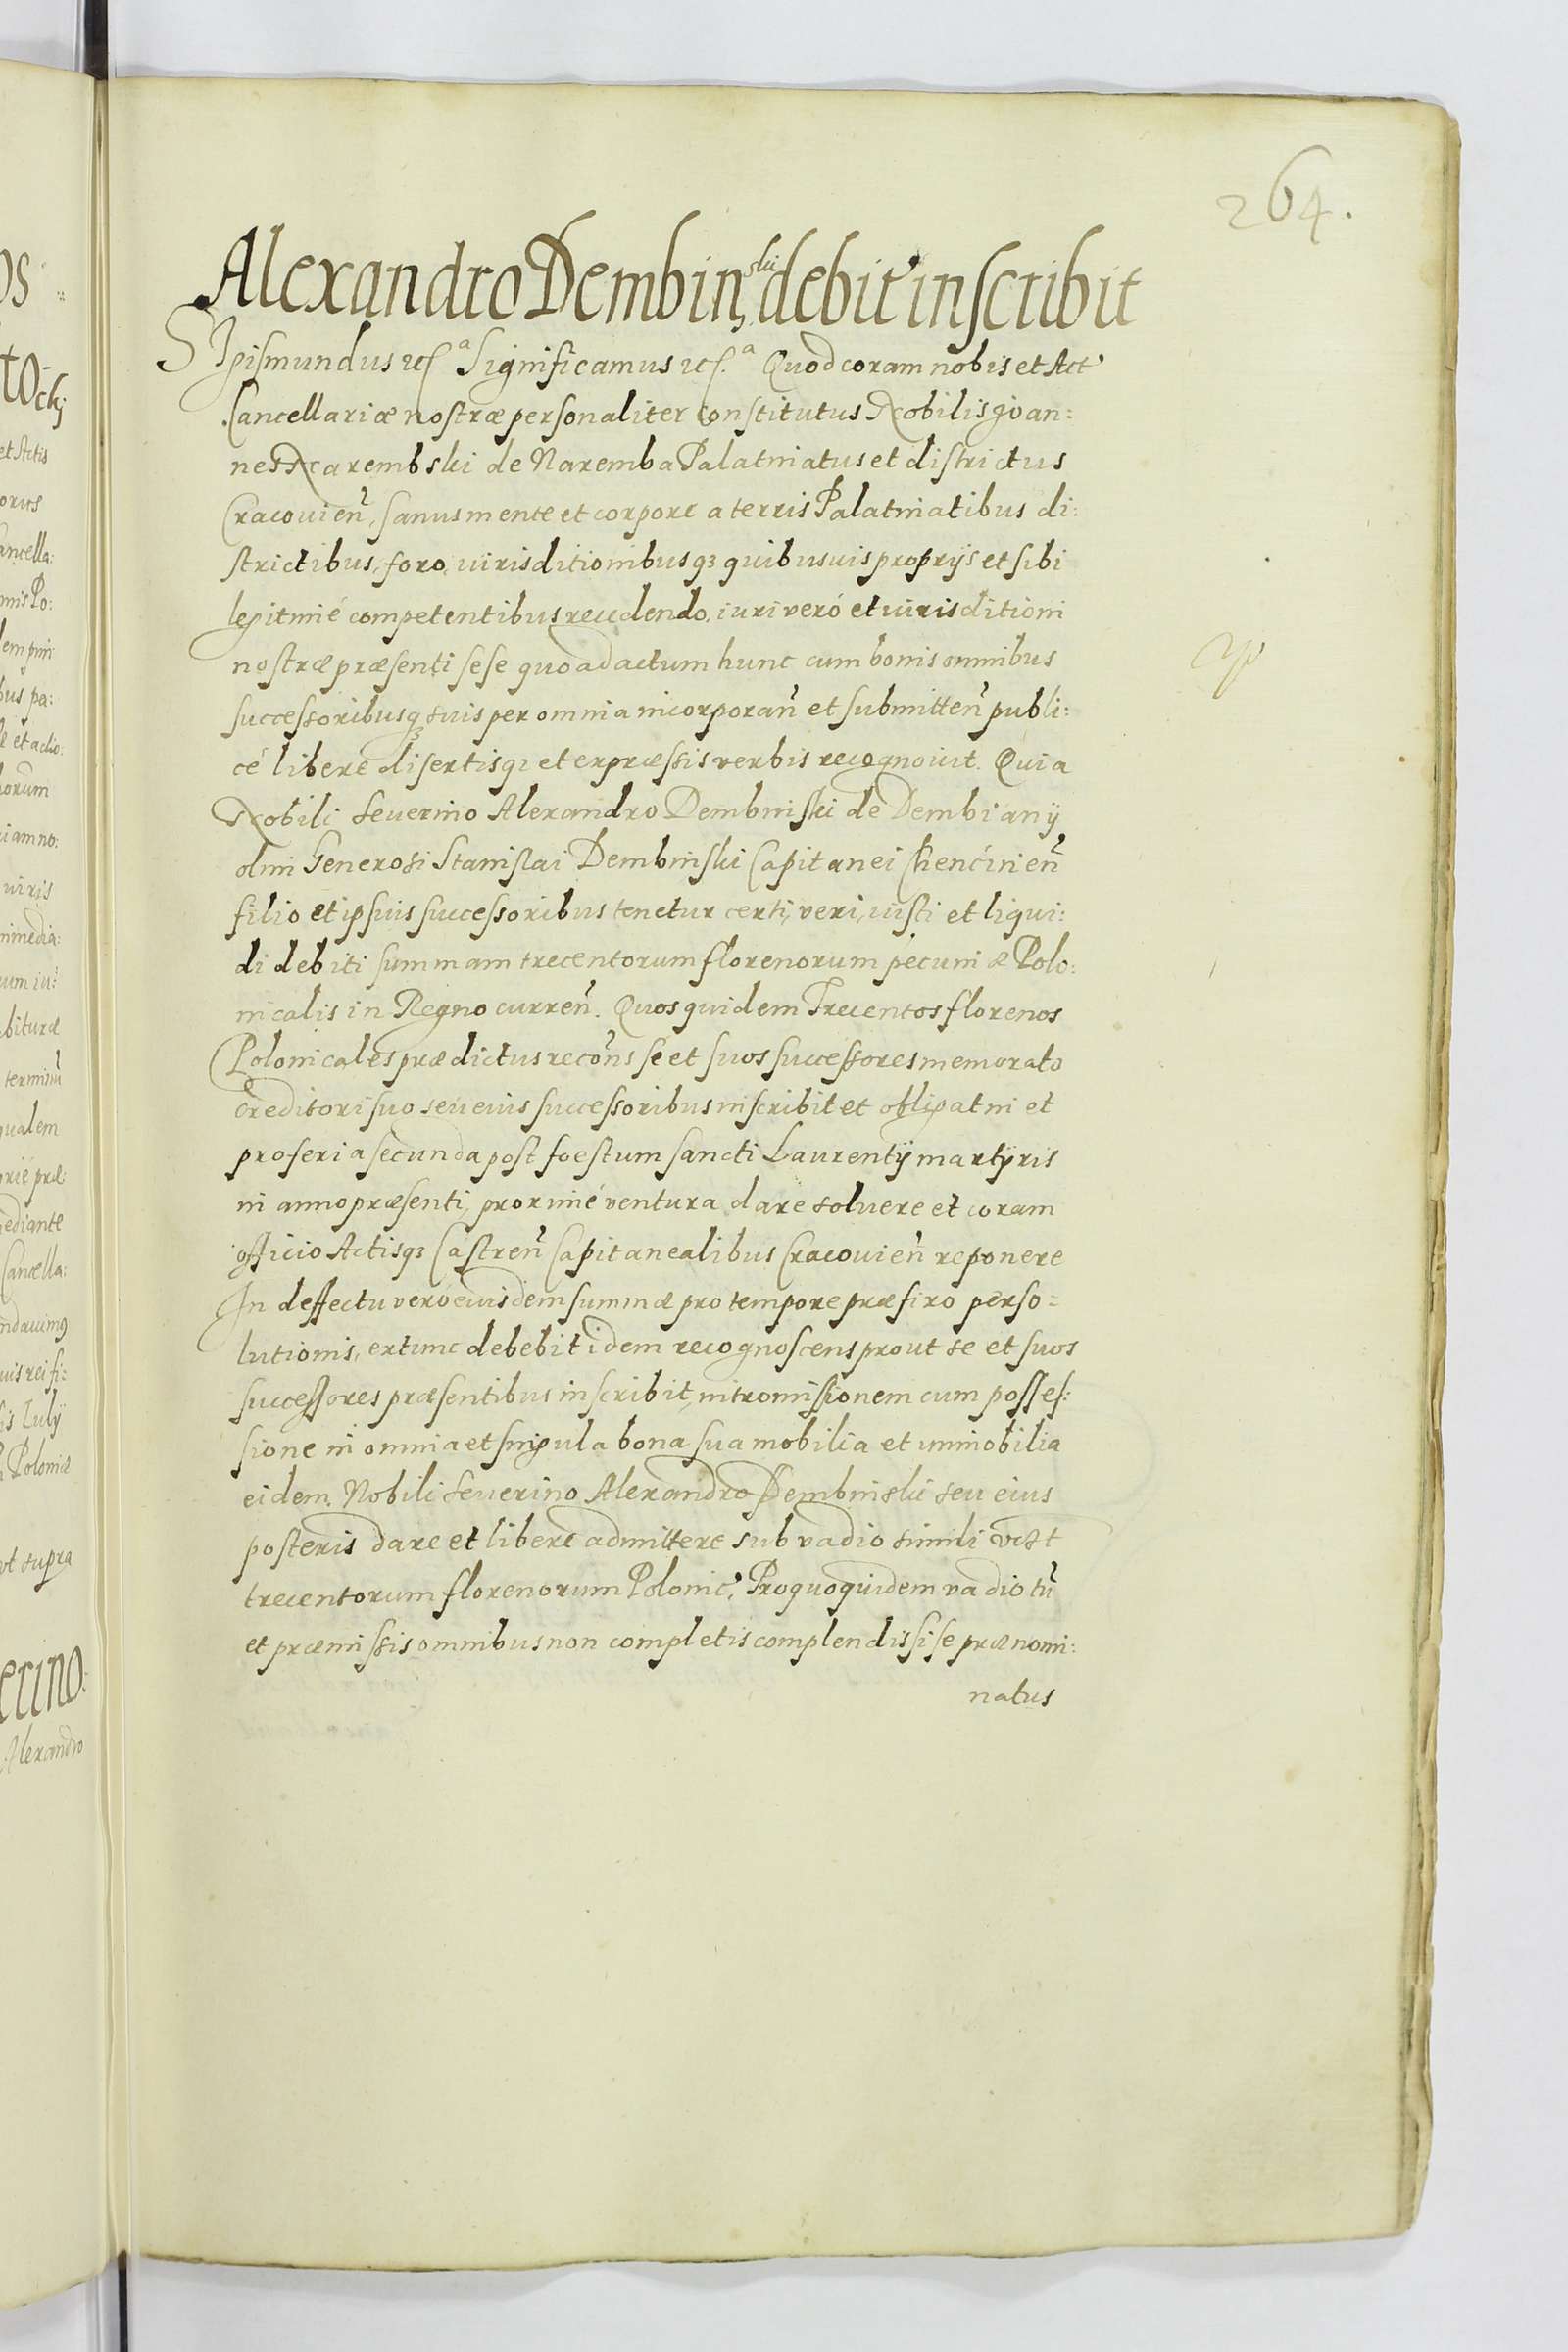 264.
Alexandro Dembinski debit' inscribit
SIgismundus etcª Significamus etc.ª Quod coram nobis et Act'
Cancellariæ nostræ personaliter constitutus Nobilis Joan:
nes Narembski de Naremba Palatinatus et districtus
Cracovien̄, sanus mente et corpore a terris Palatinatibus di:
strictibus, foro, iurisditionibusq3 quibusuis proprijs et sibi
legitimé competentibus recedendo, iuri veró et iurisditioni
nostræ præsenti sese quo ad actum hunc cum bonis omnibus
successoribusq3 suis per omnia incorporan̄ et submitten̄ publi:
cé liberé disertisq3 et expræssis verbis recognouit. Quia
Nobili Seuerino Alexandro Dembinski de Dembiany
olim Generosi Stanislai Dembinski Capitanei Chencinien̄
filio et ipsius successoribus tenetur certi, veri, iusti et liqui:
di debiti summam trecentorum florenorum pecuniæ Polo:
nicalis in Regno curren̄. Quos quidem Trecentos florenos
Polonicales prædictus recōns se et suos successores memorato
creditori suo seu eius successoribus inscribit et obligat in et
pro feria secunda post foestum sancti Laurentÿ martÿris
in anno præsenti, proximé ventura dare soluere et coram
officio Actisq3 Castren̄ Capitanealibus Cracouien̄ reponere
In deffectu veró eiusdem summæ pro tempore præfixo perso=
lutionis, extunc debebit idem recognoscens prout se et suos
successores præsentibus inscribit, intromissionem cum posses:
sione in omnia et singula bona sua mobilia et immobilia
eidem Nobili Seuerino Alexandro Dembinski seu eius
posteris dare et liberé admittere sub vadio simili vi3t
trecentorum florenorum Polonic'. Pro quo quidem vadio tū
et præmissis omnibus non completis complendis si se prænomi:
natus